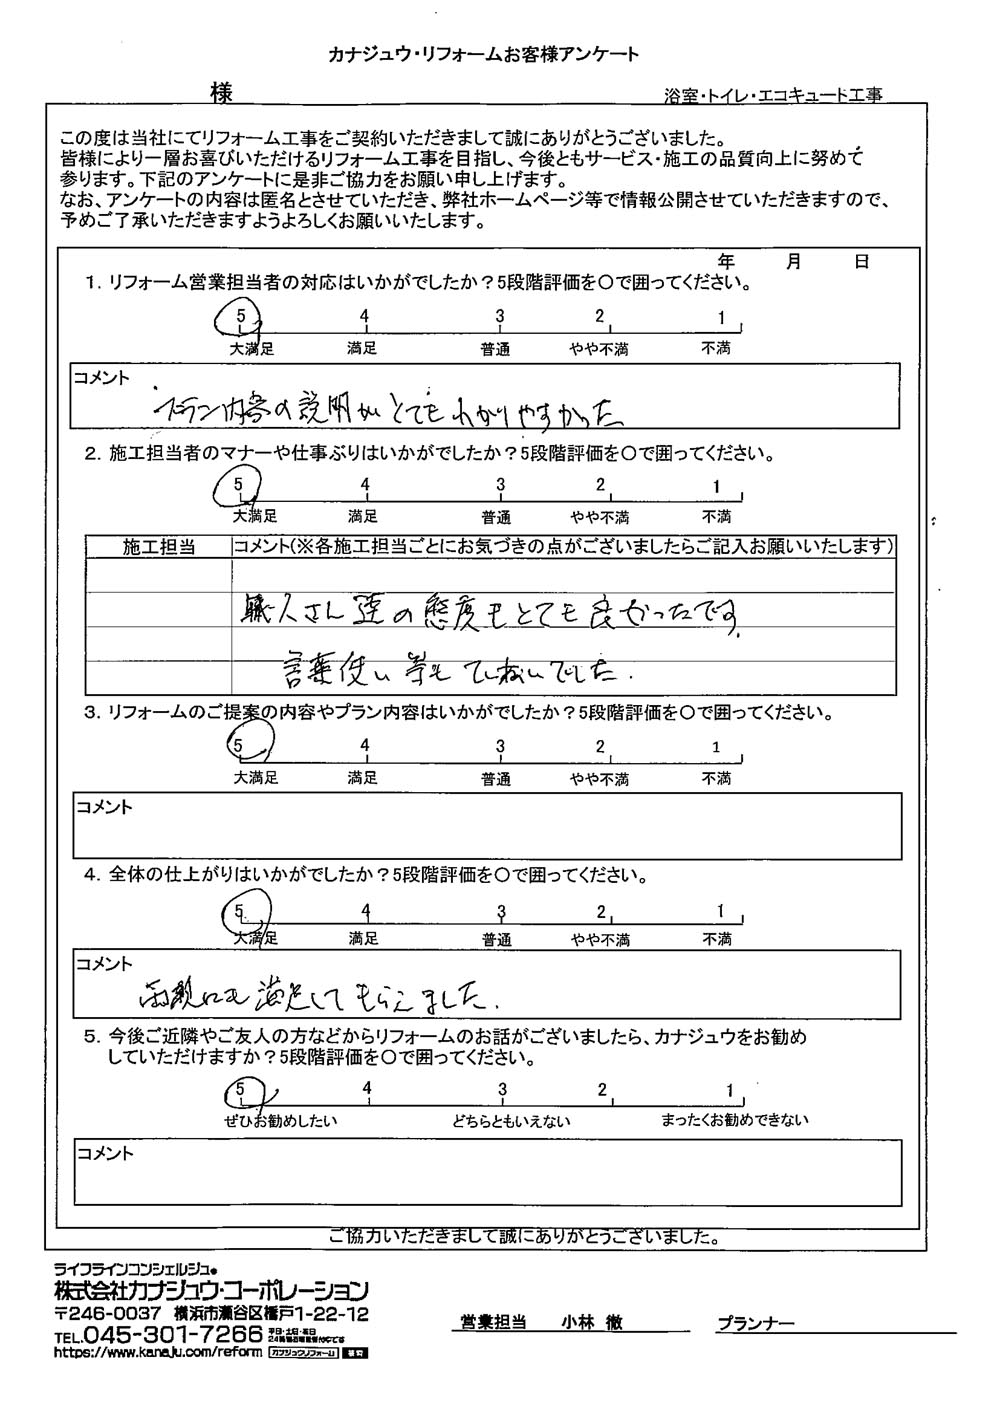 カナジュウ・リフォームお客様アンケート
様
浴室・トイレ・エコキュート工事
この度は当社にてリフォーム工事をご契約いただきまして誠にありがとうございました。
皆様により一層お喜びいただけるリフォーム工事を目指し、今後ともサービス・施工の品質向上に努めて
参ります。下記のアンケートに是非ご協力をお願い申し上げます。
なお、アンケートの内容は匿名とさせていただき、弊社ホームページ等で情報公開させていただきますので、
予めご了承いただきますようよろしくお願いいたします。
年 月 日
1. リフォーム営業担当者の対応はいかがでしたか？5段階評価を〇で囲ってください。
5 4 3 2 1
大満足 満足 普通 やや不満 不満
コメント
プラン内容の説明がとてもわかりやすかった
2. 施工担当者のマナーや仕事ぶりはいかがでしたか？5段階評価を〇で囲ってください。
5 4 3 2 1
大満足 満足 普通 やや不満 不満
施工担当 コメント(※各施工担当ごとにお気づきの点がございましたらご記入お願いいたします)
職人さん達の態度もとても良かったです。
言葉使い等もていねいでした.
3. リフォームのご提案の内容やプラン内容はいかがでしたか？5段階評価を〇で囲ってください。
5 4 3 2 1
大満足 満足 普通 やや不満 不満
コメント
4. 全体の仕上がりはいかがでしたか？5段階評価を〇で囲ってください。
5 4 3 2 1
大満足 満足 普通 やや不満 不満
コメント
両親にも満足してもらえました.
5. 今後ご近隣やご友人の方などからリフォームのお話がございましたら、カナジュウをお勧め
していただけますか？5段階評価を〇で囲ってください。
5 4 3 2 1
ぜひお勧めしたい どちらともいえない まったくお勧めできない
コメント
ご協力いただきまして誠にありがとうございました。
ライフラインコンシェルジュ●
株式会社カナジュウ・コーポレーション
〒246-0037 横浜市瀬谷区橋戸1-22-12
TEL.045-301-7266
https://www.kanaju.com/reform カナジュウリフォーム
営業担当 小林 徹
プランナー